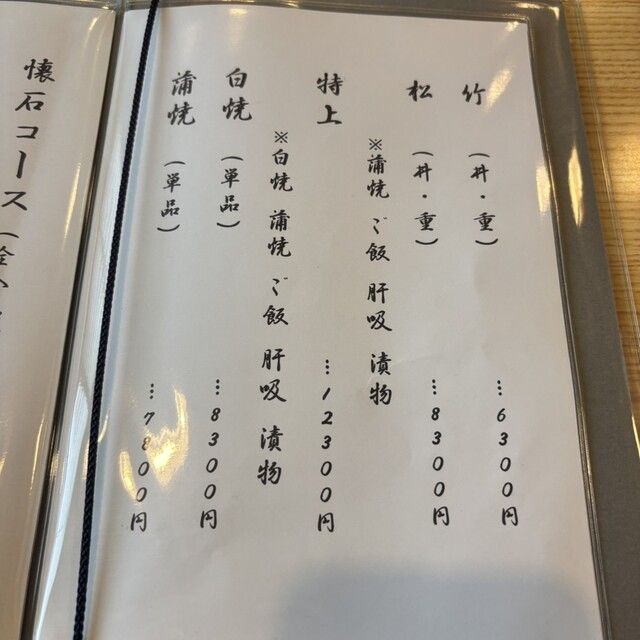 竹 (丼・重) …6300円
松 (丼・重) …8300円
※蒲焼 ご飯 肝吸 漬物
特上 …12300円
※白焼 蒲焼 ご飯 肝吸 漬物
白焼 (単品) …8300円
蒲焼 (単品) …7800円
懐石コース(